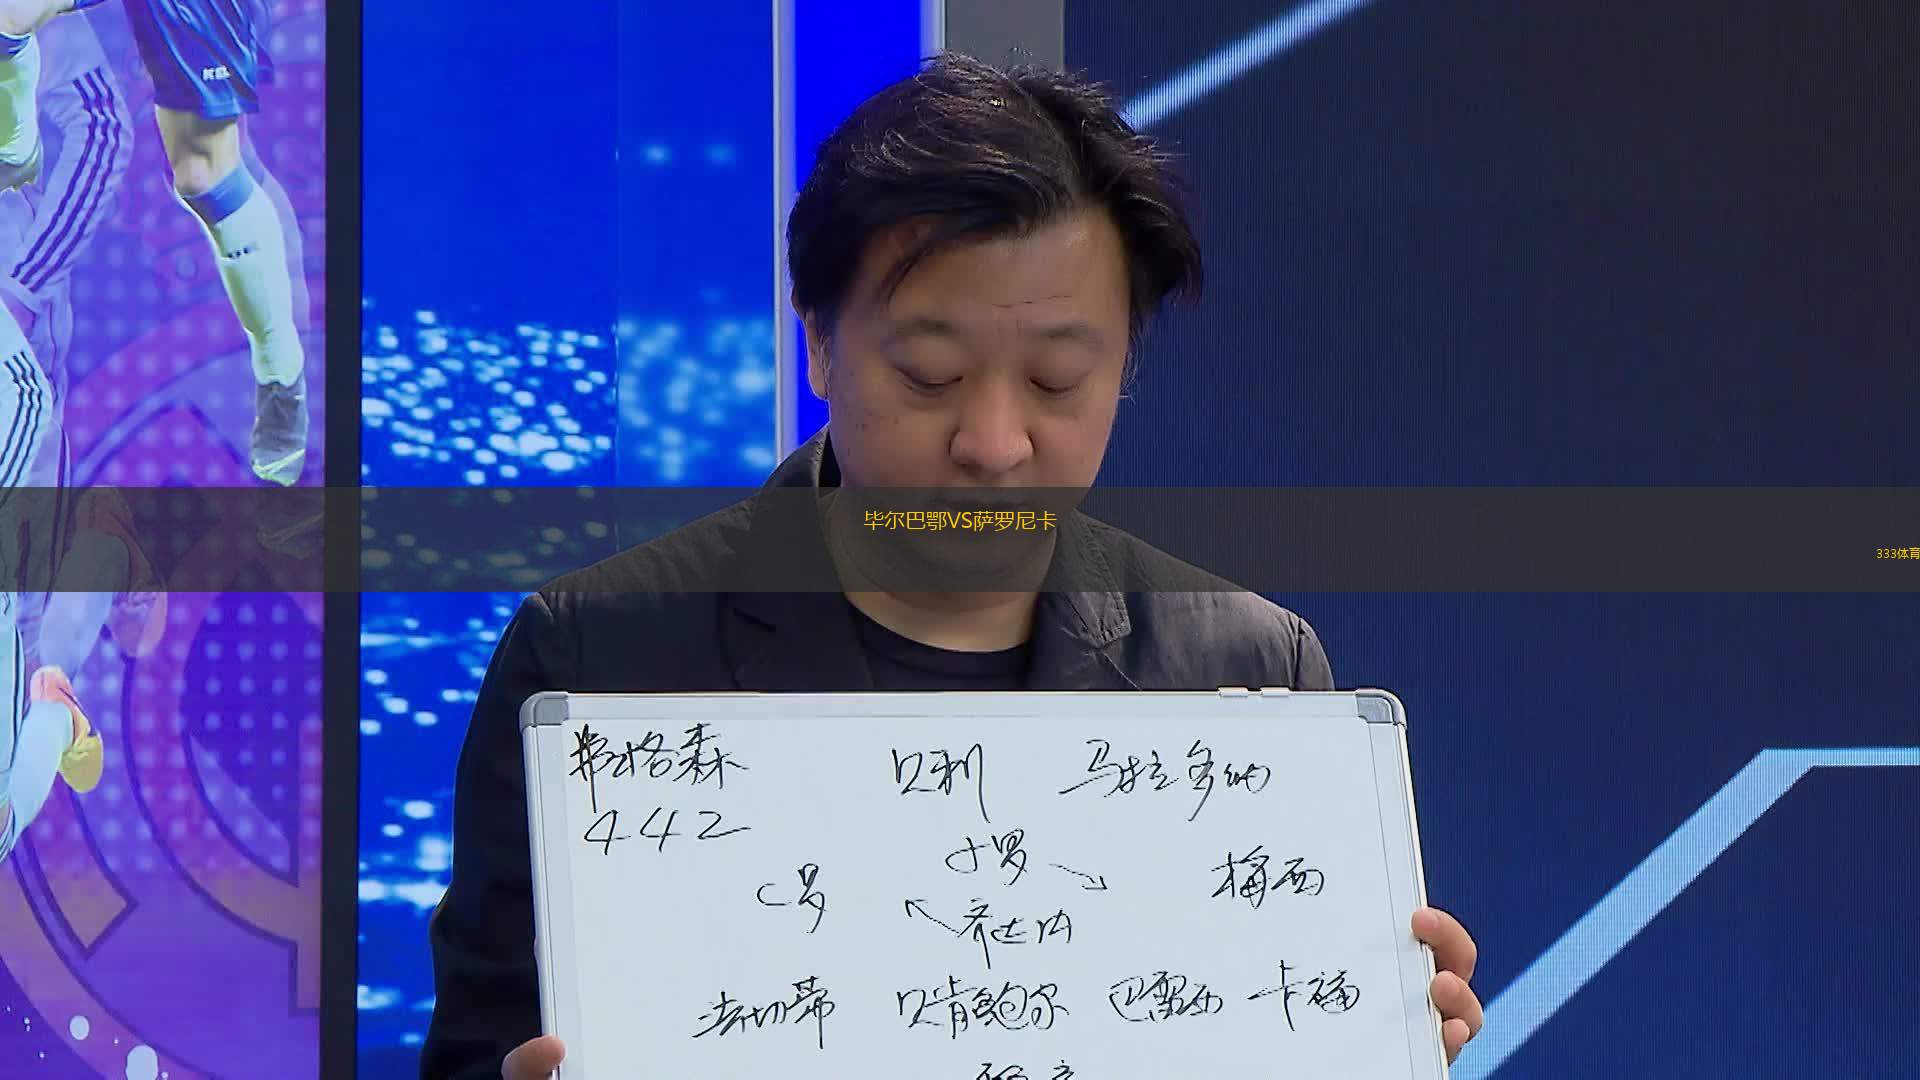 毕尔巴鄂VS萨罗尼卡
333体育
弗格森 贝利 马拉多纳
442
小罗
C罗 梅西
齐达内
法切蒂 贝肯鲍尔 巴雷西 卡福